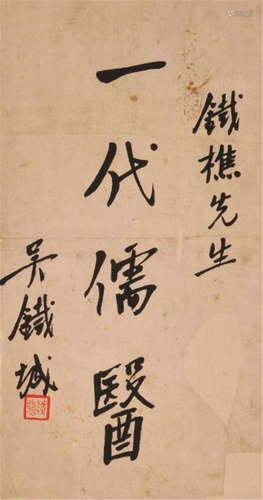 鐵樵先生
一代儒醫
吳鐵城